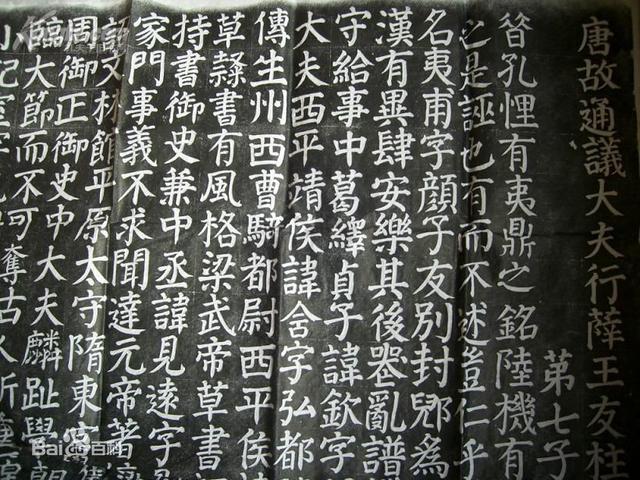 唐故通議大夫行薛王友柱
第七子
昔孔悝有夷鼎之銘陸機有
之是誣也有而不述豈仁乎
名夷甫字顏子友別封郳為
漢有異肆安樂其後喪亂譜
守給事中葛繹貞子諱欽字
大夫西平靖侯諱含字弘都
傳生州西曹騎都尉西平侯
草隸書有風格梁武帝草書
持書御史兼中丞諱見遠字
家門事義不求聞達元帝著
文林館平原太守隋東宮
周御正御史中大夫麟趾學
臨大節而不可奪古人所
小記室
Bai百科